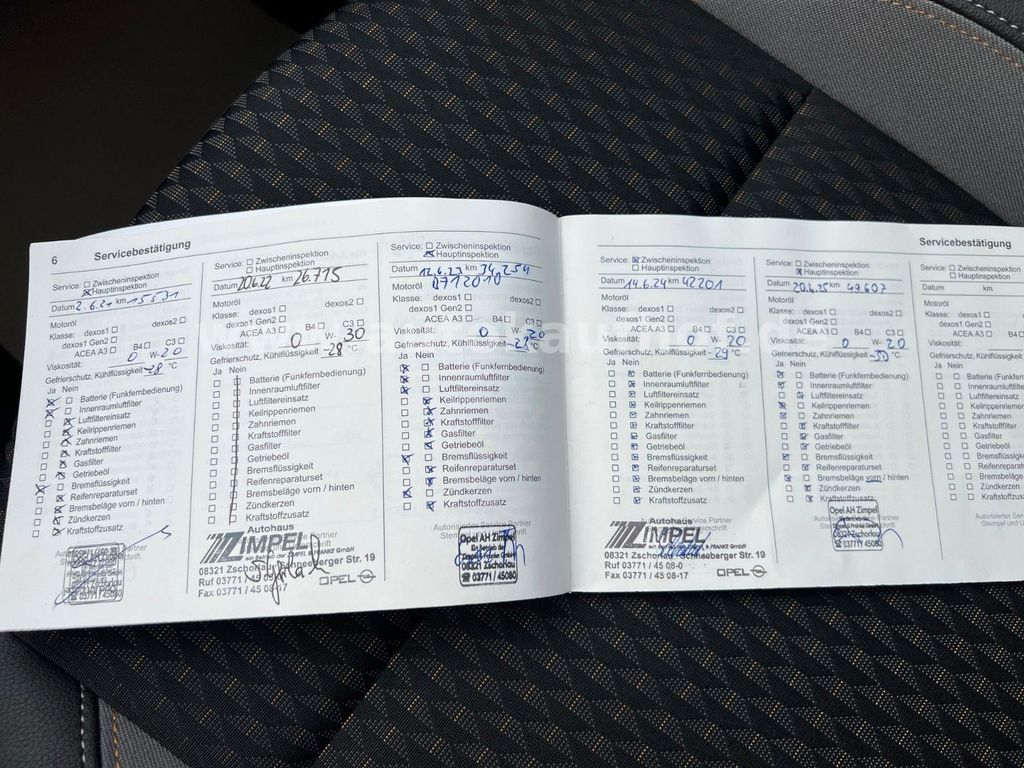 6 Servicebestätigung
Service: Zwischeninspektion
Hauptinspektion
Datum 2.6.21 km 15531
Motoröl
Klasse: dexos1 dexos2
dexos1 Gen2
ACEA A3 B4 C3
Viskosität: 0 W- 20
Gefrierschutz, Kühlflüssigkeit -28 °C
Ja Nein
Batterie (Funkfernbedienung)
Innenraumluftfilter
Luftfiltereinsatz
Keilrippenriemen
Zahnriemen
Kraftstofffilter
Gasfilter
Getriebeöl
Bremsflüssigkeit
Reifenreparaturset
Bremsbeläge vorn / hinten
Zündkerzen
Kraftstoffzusatz
03771 / 45080
Service: Zwischeninspektion
Hauptinspektion
Datum 20.6.22 km 26.715
Motoröl
Klasse: dexos1 dexos2
dexos1 Gen2
ACEA A3 B4 C3
Viskosität: 0 W- 30
Gefrierschutz, Kühlflüssigkeit -28 °C
Ja Nein
Batterie (Funkfernbedienung)
Innenraumluftfilter
Luftfiltereinsatz
Keilrippenriemen
Zahnriemen
Kraftstofffilter
Gasfilter
Getriebeöl
Bremsflüssigkeit
Reifenreparaturset
Bremsbeläge vorn / hinten
Zündkerzen
Kraftstoffzusatz
Autohaus
ZIMPEL
08321 Zschorlau Schneeberger Str. 19
Ruf 03771 / 45 08-0
Fax 03771 / 45 08-17 OPEL
Service: Zwischeninspektion
Hauptinspektion
Datum 12.6.23 km 34.254
Motoröl 0712010
Klasse: dexos1 dexos2
dexos1 Gen2
ACEA A3 B4 C3
Viskosität: 0 W- 20
Gefrierschutz, Kühlflüssigkeit -28 °C
Ja Nein
Batterie (Funkfernbedienung)
Innenraumluftfilter
Luftfiltereinsatz
Keilrippenriemen
Zahnriemen
Kraftstofffilter
Gasfilter
Getriebeöl
Bremsflüssigkeit
Reifenreparaturset
Bremsbeläge vorn / hinten
Zündkerzen
Kraftstoffzusatz
Autorisierter Service Partner
Opel AH Zimpel
08321 Zschorlau
03771 / 45080
Servicebestätigung
Service: Zwischeninspektion
Hauptinspektion
Datum 14.6.24 km 42201
Motoröl
Klasse: dexos1 dexos2
dexos1 Gen2
ACEA A3 B4 C3
Viskosität: 0 W- 20
Gefrierschutz, Kühlflüssigkeit -29 °C
Ja Nein
Batterie (Funkfernbedienung)
Innenraumluftfilter
Luftfiltereinsatz
Keilrippenriemen
Zahnriemen
Kraftstofffilter
Gasfilter
Getriebeöl
Bremsflüssigkeit
Reifenreparaturset
Bremsbeläge vorn / hinten
Zündkerzen
Kraftstoffzusatz
Autohaus
ZIMPEL
08321 Zschorlau Schneeberger Str. 19
Ruf 03771 / 45 08-0
Fax 03771 / 45 08-17 OPEL
Service: Zwischeninspektion
Hauptinspektion
Datum 20.6.25 km 49.607
Motoröl
Klasse: dexos1 dexos2
dexos1 Gen2
ACEA A3 B4 C3
Viskosität: 0 W- 20
Gefrierschutz, Kühlflüssigkeit -30 °C
Ja Nein
Batterie (Funkfernbedienung)
Innenraumluftfilter
Luftfiltereinsatz
Keilrippenriemen
Zahnriemen
Kraftstofffilter
Gasfilter
Getriebeöl
Bremsflüssigkeit
Reifenreparaturset
Bremsbeläge vorn / hinten
Zündkerzen
Kraftstoffzusatz
Opel AH Zimpel
08321 Zschorlau
03771 / 45080
Service: Zwischeninspektion
Hauptinspektion
Datum km
Motoröl
Klasse: dexos1
dexos1 Gen2
ACEA A3
Viskosität:
Gefrierschutz, Kühlflüssigkeit
Ja Nein
Autorisierter Service